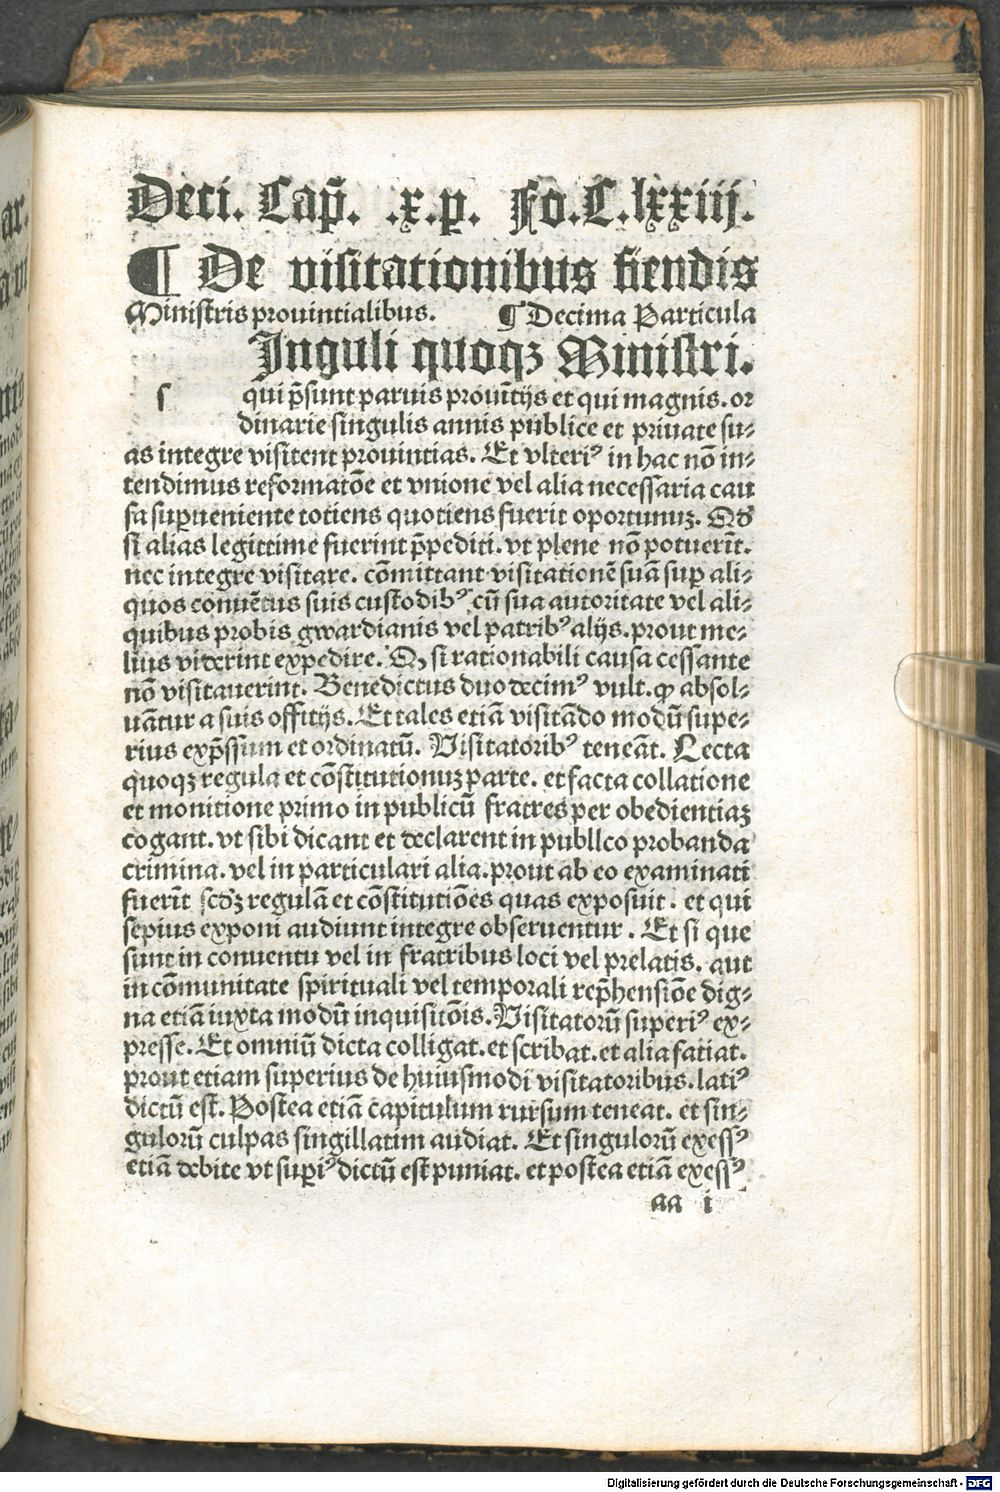 Deci. Cap̃. .x.p. Fo.C.lxxiij.
¶ De visitationibus fiendis
Ministris prouintialibus. ¶ Decima Particula
Inguli quoqꝫ Ministri.
ſ qui p̃sunt paruis prouĩtijs et qui magnis. or
dinarie singulis annis publice et priuate su⸗
as integre visitent prouintias. Et vlteriꝰ in hac nõ in⸗
tendimus reformatõe et vnione vel alia necessaria cau
sa suꝑueniente totiens quotiens fuerit oportunuꝫ. Qď
si alias legittime fuerint p̃pediti. vt plene nõ potuerĩt.
nec integre visitare. cõmittant visitationẽ suã suꝑ ali⸗
quos conuẽtus suis custodibꝰ cũ sua autoritate vel ali⸗
quibus probis gwardianis vel patribꝰ alijs. prout me⸗
lius viderint expedire. Qꝫ si rationabili causa cessante
nõ visitauerint. Benedictus duodecimꝰ vult. ꝙ absol⸗
uãtur a suis offitijs. Et tales etiã visitãdo modũ supe⸗
rius exp̃ssum et ordinatũ. Visitatoribꝰ teneãt. Lecta
quoqꝫ regula et cõstitutionuꝫ parte. et facta collatione
et monitione primo in publicũ fratres per obedientiaꝫ
cogant. vt sibi dicant et declarent in publlco probanda
crimina. vel in particulari alia. prout ab eo examinati
fuerĩt scďꝫ regulã et cõstitutiões quas exposuĩt. et qui
sepius exponi audiunt integre obseruentur. Et si que
sunt in conuentu vel in fratribus loci vel prelatis. aut
in cõmunitate spirituali vel temporali rep̃hensiõe dig⸗
na etiã iuxta modũ inquisitõis. Visitatorũ superiꝰ ex⸗
presse. Et omniũ dicta colligat. et scribat. et alia fatiat.
prout etiam superius de huiusmodi visitatoribus. latiꝰ
dictũ est. Postea etiã capitulum rursum teneat. et sin⸗
gulorũ culpas singillatim audiat. Et singulorũ exessꝰ
etiã debite vt suꝑiꝰ dictũ est puniat. et postea etiã exessꝰ
aa i
Digitalisierung gefördert durch die Deutsche Forschungsgemeinschaft - DFG